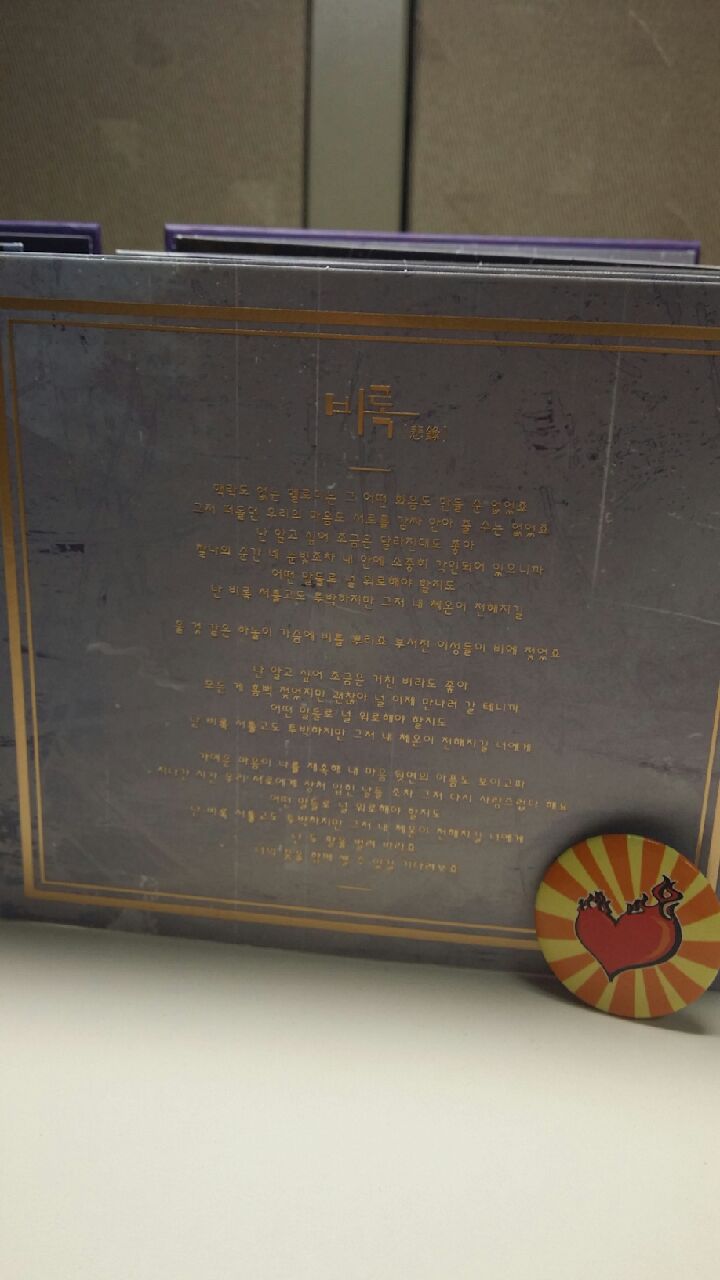 비록
悲錄
맥락도 없는 멜로디는 그 어떤 화음도 만들 순 없었죠
그저 떠돌던 우리의 마음도 서로를 감싸 안아 줄 수는 없었죠
난 알고 싶어 조금은 달라진대도 좋아
찰나의 순간 네 눈빛조차 내 안에 소중히 각인되어 있으니까
어떤 말들로 널 위로해야 할지도
난 비록 서툴고도 투박하지만 그저 내 체온이 전해지길
울 것 같은 하늘이 가슴에 비를 뿌리죠 부서진 이성들이 비에 젖었죠
난 알고 싶어 조금은 거친 비라도 좋아
모든 게 흠뻑 젖었지만 괜찮아 널 이제 만나러 갈 테니까
어떤 말들로 널 위로해야 할지도
난 비록 서툴고도 투박하지만 그저 내 체온이 전해지길 너에게
가여운 마음이 나를 재촉해 내 마음 뒷면의 아픔도 보이고파
지나간 시간 우리 서로에게 상처 입힌 날들 조차 그저 다시 사랑스럽다 해요
어떤 말들로 널 위로해야 할지도
난 비록 서툴고도 투박하지만 그저 내 체온이 전해지길 너에게
난 두 팔을 벌려 바라죠
너의 빛을 함께 쬘 수 있길 기다려보죠